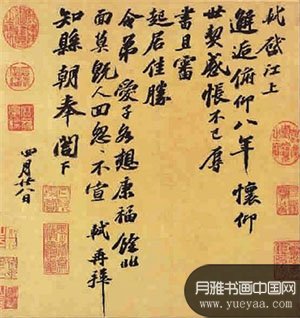 轼启江上
邂逅俯仰八年怀仰
世契感怅不已辱
书且审
起居佳胜
令弟爱子各想康福余非
面莫既人回忽忽不宣轼再拜
知县朝奉阁下
四月廿八日
月雅书画中国网
www.yueyaa.com